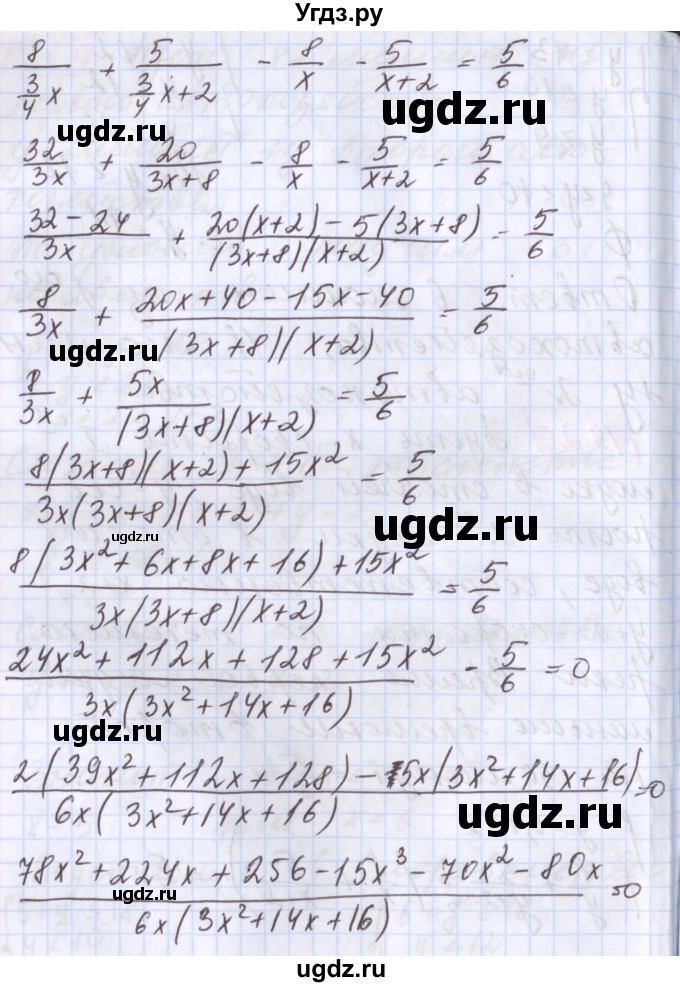 Угдз.ру
8/(3/4 x) + 5/(3/4 x+2) - 8/x - 5/(x+2) = 5/6
ugdz.ru ugdz.ru
32/3x + 20/(3x+8) - 8/x - 5/(x+2) = 5/6
(32-24)/3x + (20(x+2)-5(3x+8))/((3x+8)(x+2)) = 5/6
8/3x + (20x+40-15x-40)/((3x+8)(x+2)) = 5/6
ugdz.ru
8/3x + 5x/((3x+8)(x+2)) = 5/6
(8(3x+8)(x+2)+15x²)/(3x(3x+8)(x+2)) = 5/6
ugdz.ru
ugdz.ru
(8(3x²+6x+8x+16)+15x²)/(3x(3x+8)(x+2)) = 5/6
(24x²+112x+128+15x²)/(3x(3x²+14x+16)) - 5/6 = 0
ugdz.ru
(2(39x²+112x+128)-5x(3x²+14x+16))/(6x(3x²+14x+16)) = 0
ugdz.ru
(78x²+224x+256-15x³-70x²-80x)/(6x(3x²+14x+16)) = 0
ugdz.ru
ugdz.ru
ugdz.ru